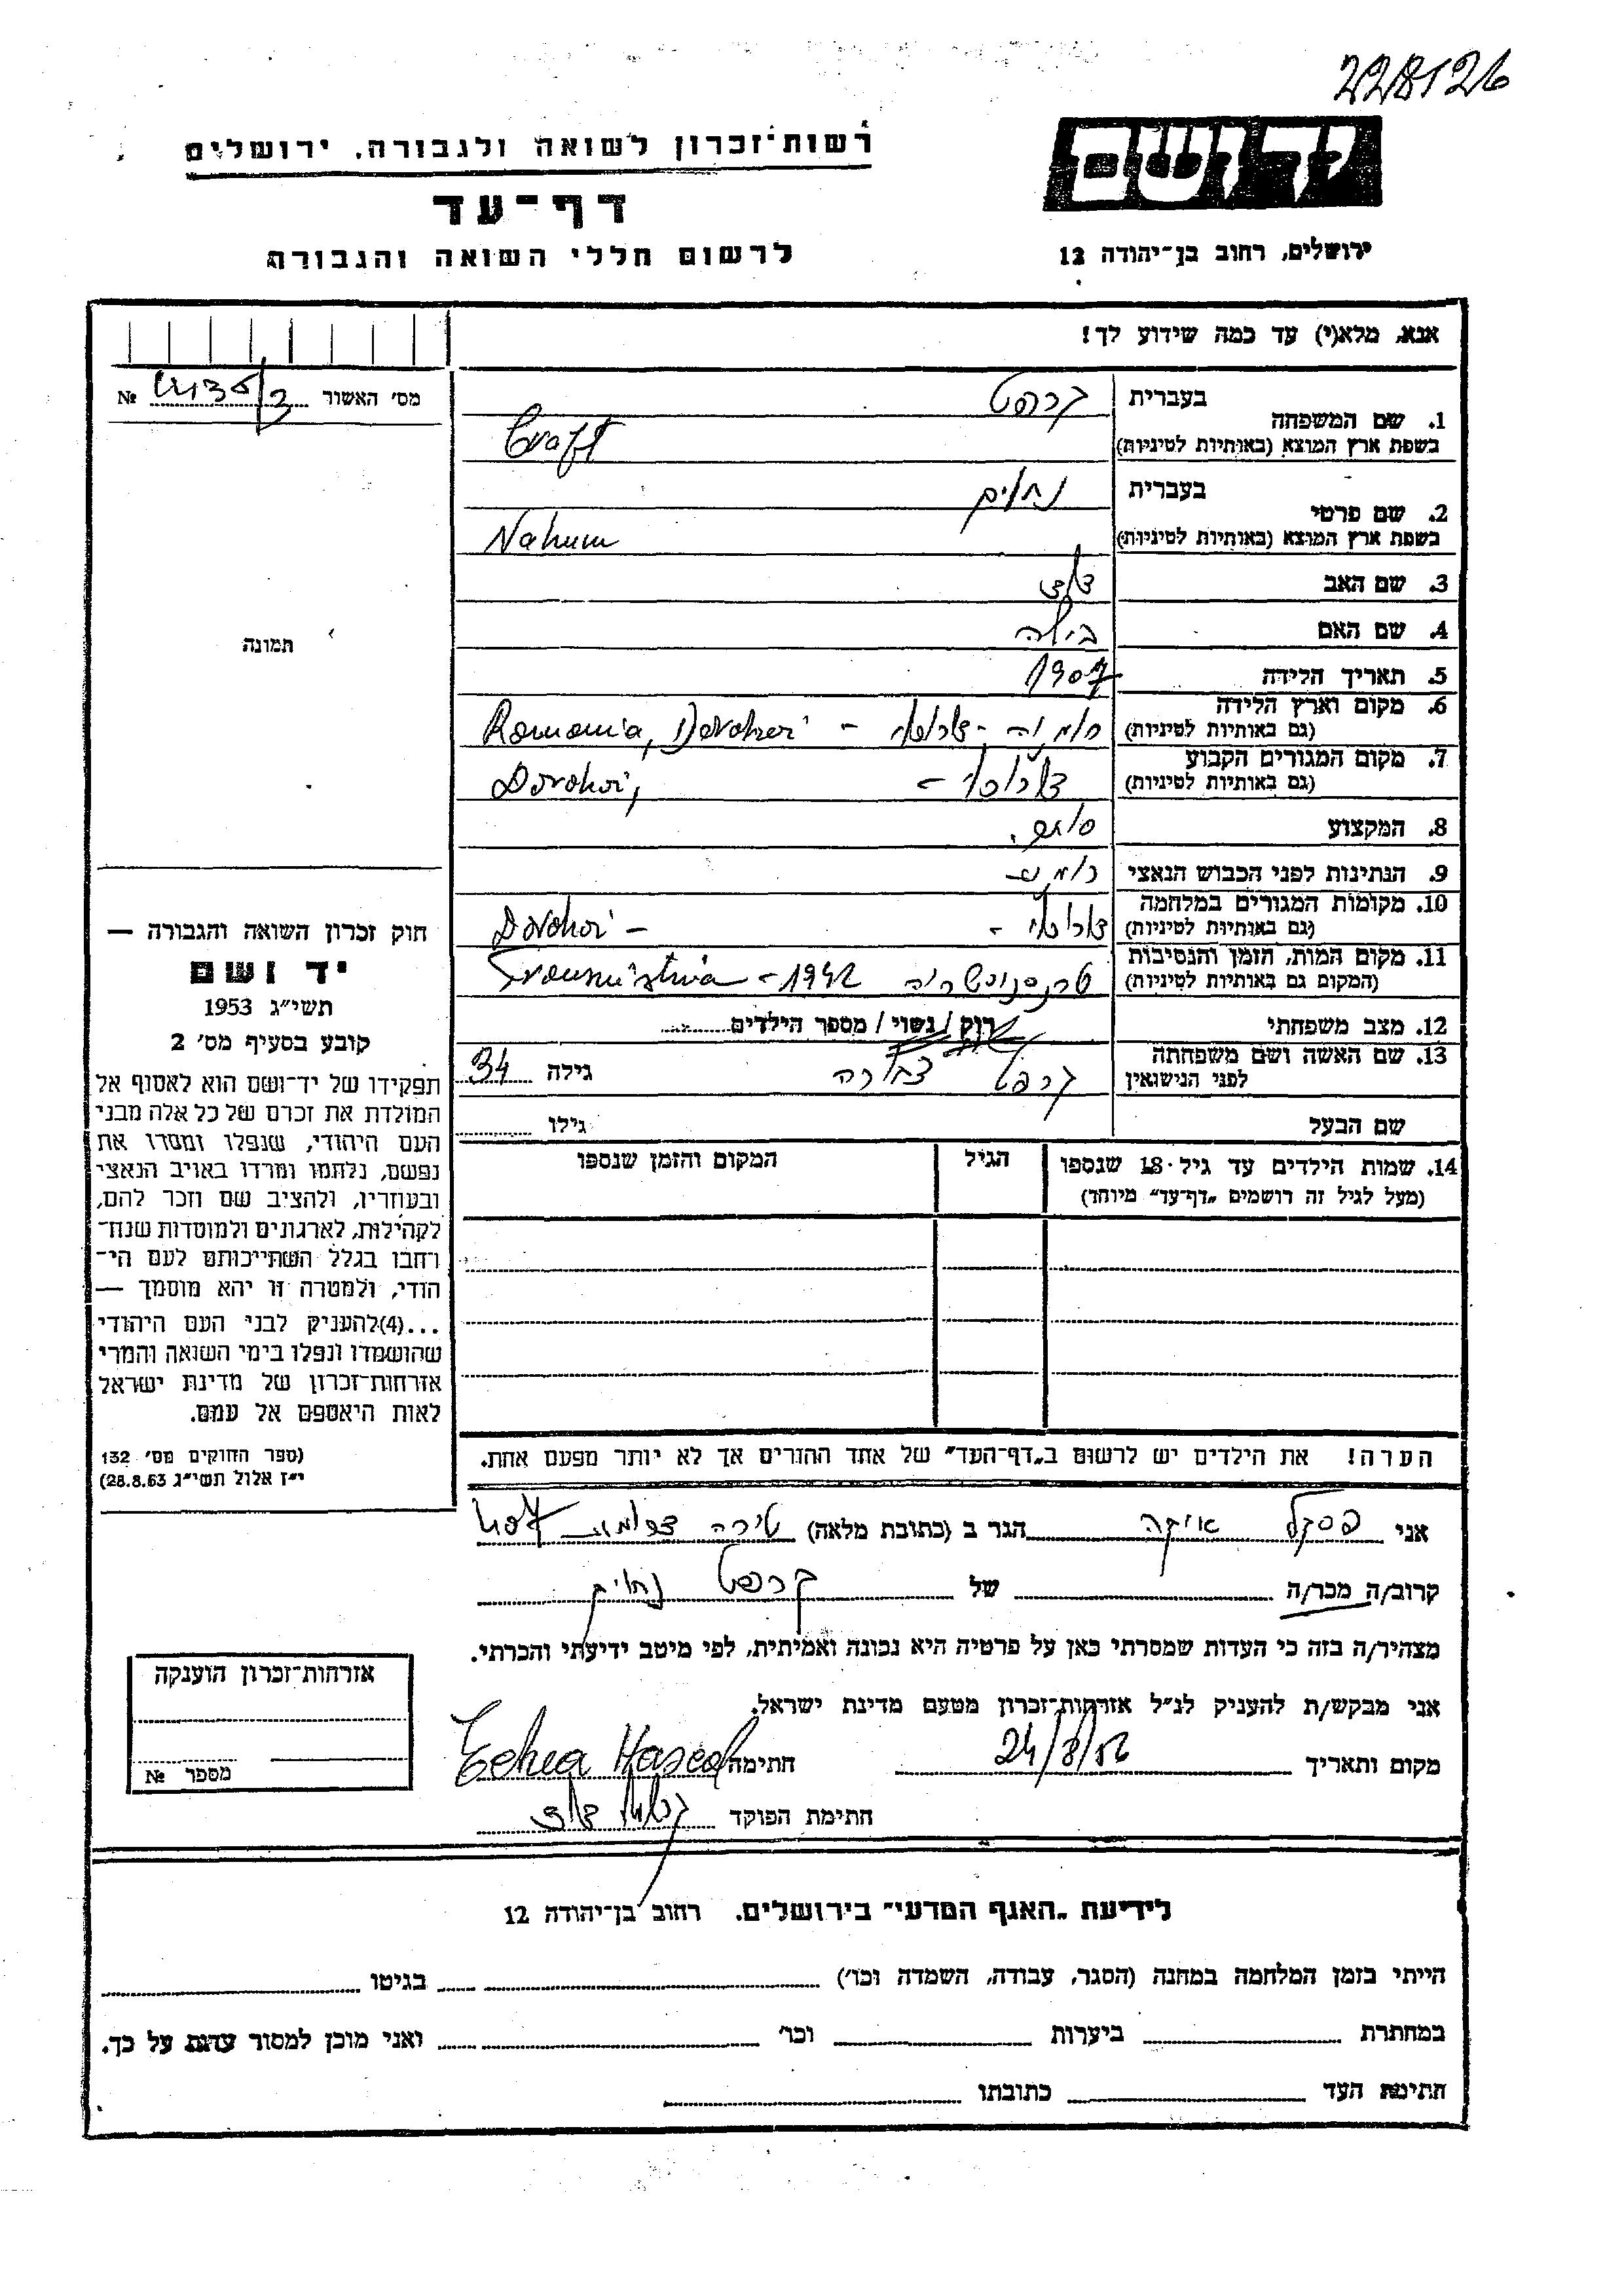 228126
רשות־זכרון לשואה ולגבורה, ירושלים
יד ושם
דף־עד
לרשום חללי השואה והגבורה
ירושלים, רחוב בן־יהודה 12
אנא, מלא(י) עד כמה שידוע לך!
מס׳ האשור №
1. שם המשפחה בעברית קרפט
בשפת ארץ המוצא (באותיות לטיניות) Craft
2. שם פרטי בעברית נחום
בשפת ארץ המוצא (באותיות לטיניות) Nahum
3. שם האב דוד
4. שם האם בילה
תמונה
5. תאריך הלידה 1907
6. מקום וארץ הלידה
(גם באותיות לטיניות) רומניה - דורוחוי - Romania, Dorohoi
7. מקום המגורים הקבוע
(גם באותיות לטיניות) דורוחוי - Dorohoi,
8. המקצוע סוחר.
9. הנתינות לפני הכבוש הנאצי רומנית
10. מקומות המגורים במלחמה
(גם באותיות לטיניות) דורוחוי - Dorohoi -
11. מקום המות, הזמן והנסיבות
(המקום גם באותיות לטיניות) טרנסניסטריה 1942 -
12. מצב משפחתי רווק / נשוי / מספר הילדים
13. שם האשה ושם משפחתה
לפני הנישואין קרפט דבורה גילה 34
שם הבעל גילו
14. שמות הילדים עד גיל 18 שנספו הגיל המקום והזמן שנספו
(מעל לגיל זה רושמים „דף־עד” מיוחד)
הערה! את הילדים יש לרשום ב„דף־העד” של אחד ההורים אך לא יותר מפעם אחת.
חוק זכרון השואה והגבורה —
יד ושם
תשי״ג 1953
קובע בסעיף מס׳ 2
תפקידו של יד־ושם הוא לאסוף אל
המולדת את זכרם של כל אלה מבני
העם היהודי, שנפלו ומסרו את
נפשם, נלחמו ומרדו באויב הנאצי
ובעוזריו, ולהציב שם וזכר להם,
לקהילות, לארגונים ולמוסדות שנח־
רחבו בגלל השתייכותם לעם הי־
הודי, ולמטרה זו יהא מוסמך —
...(4)להעניק לבני העם היהודי
שהושמדו ונפלו בימי השואה והמרי
אזרחות־זכרון של מדינת ישראל
לאות היאספם אל עמם.
(ספר החוקים מס׳ 132
י״ז אלול תשי״ג 28.8.53)
אני פסקל איקה הגר ב (כתובת מלאה) טירה
קרוב/ה מכר/ה של קרפט נחום
מצהיר/ה בזה כי העדות שמסרתי כאן על פרטיה היא נכונה ואמיתית, לפי מיטב ידיעתי והכרתי.
אני מבקש/ת להעניק לנ״ל אזרחות־זכרון מטעם מדינת ישראל.
מקום ותאריך 24/8/56 חתימה
חתימת הפוקד
אזרחות־זכרון הוענקה
מספר №
לידיעת „האגף המדעי” בירושלים. רחוב בן־יהודה 12
הייתי בזמן המלחמה במחנה (הסגר, עבודה, השמדה וכו׳) בגיטו
במחתרת ביערות וכו׳ ואני מוכן למסור עדות על כך.
חתימת העד כתובתו